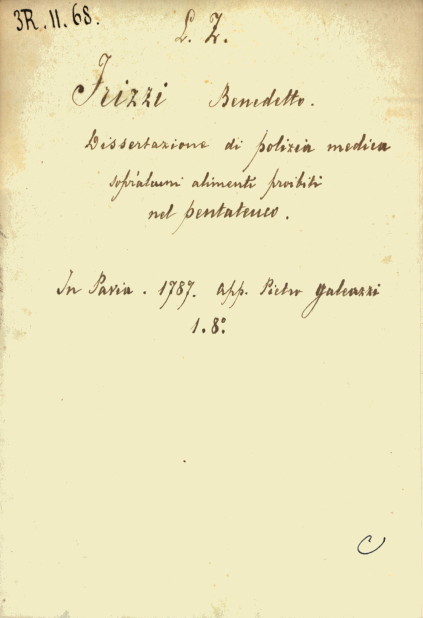 3R.II.68.
L. Z.
Frizzi Benedetto.
Dissertazione di polizia medica
sopr'alcuni alimenti proibiti
nel pentateuco.
In Pavia. 1787. app. Pietro Galeazzi
1. 8°
C